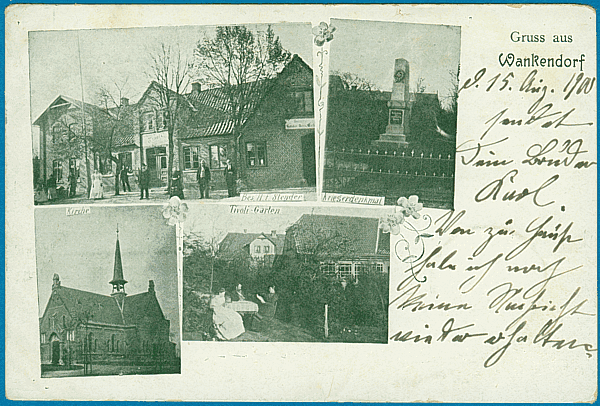 Gruss aus
Wankendorf
d. 15. Aug. 1900
sendet
Dein Bruder
Karl.
Von zu Hause
habe ich noch
keine Nachricht
wieder erhalten.
Bes. H. F. Slender
Kriegerdenkmal
Kirche
Tivoli-Garten